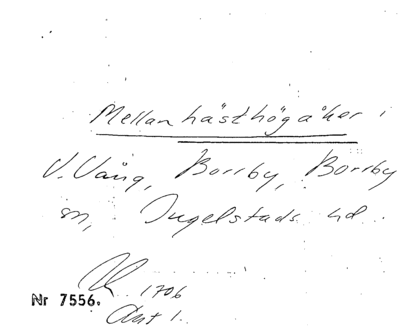 Mellanhästhögåker i
V. Vång, Borrby, Borrby
sn, Ingelstads hd.
1706
Akt 1.
Nr 7556.